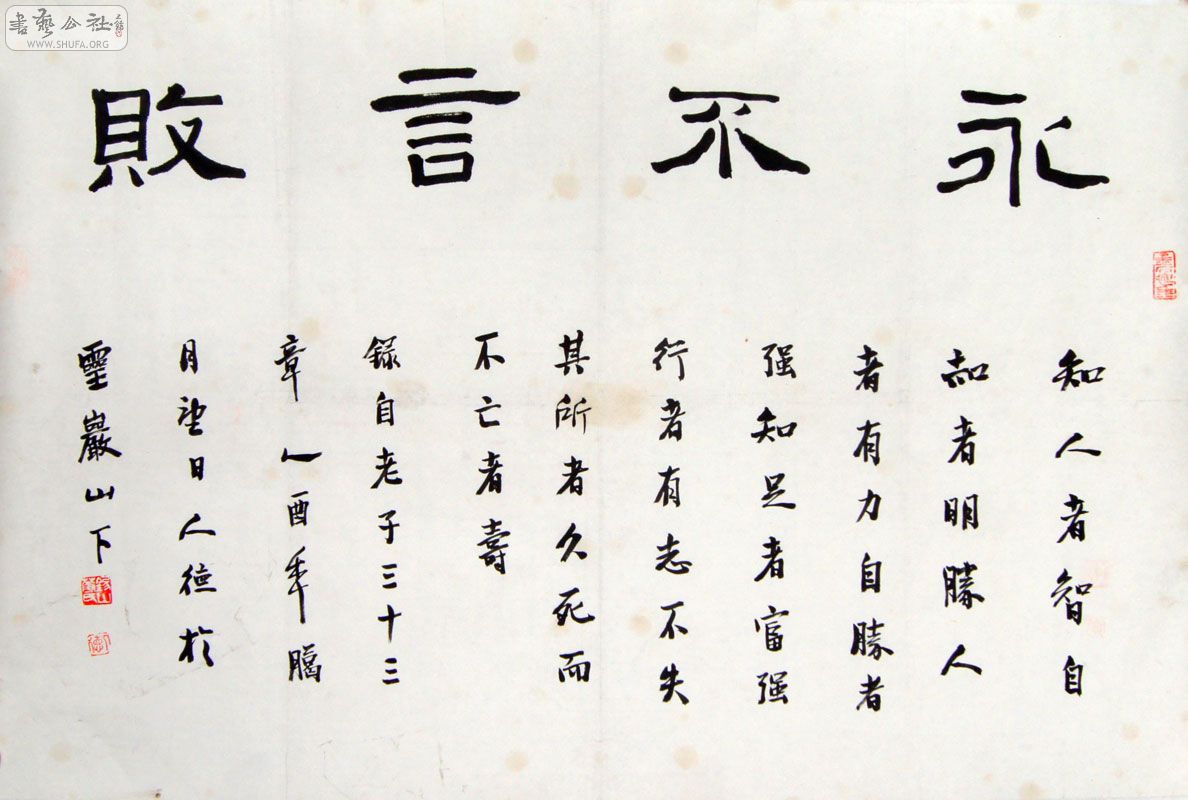 書藝公社
WWW.SHUFA.ORG
永不言敗
知人者智自
知者明勝人
者有力自勝者
强知足者富强
行者有志不失
其所者久死而
不亡者壽
録自老子三十三
章乙酉年臈
月望日人德於
靈巖山下